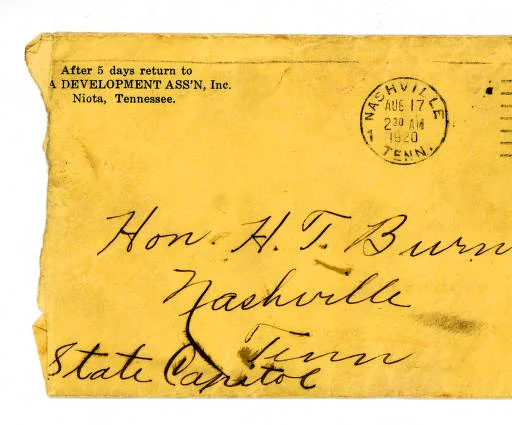 After 5 days return to
A DEVELOPMENT ASS'N, Inc.
Niota, Tennessee.
NASHVILLE
AUG 17
2 30 AM
1920
1
TENN.
Hon. H. T. Burn
Nashville
Tenn
State Capitol